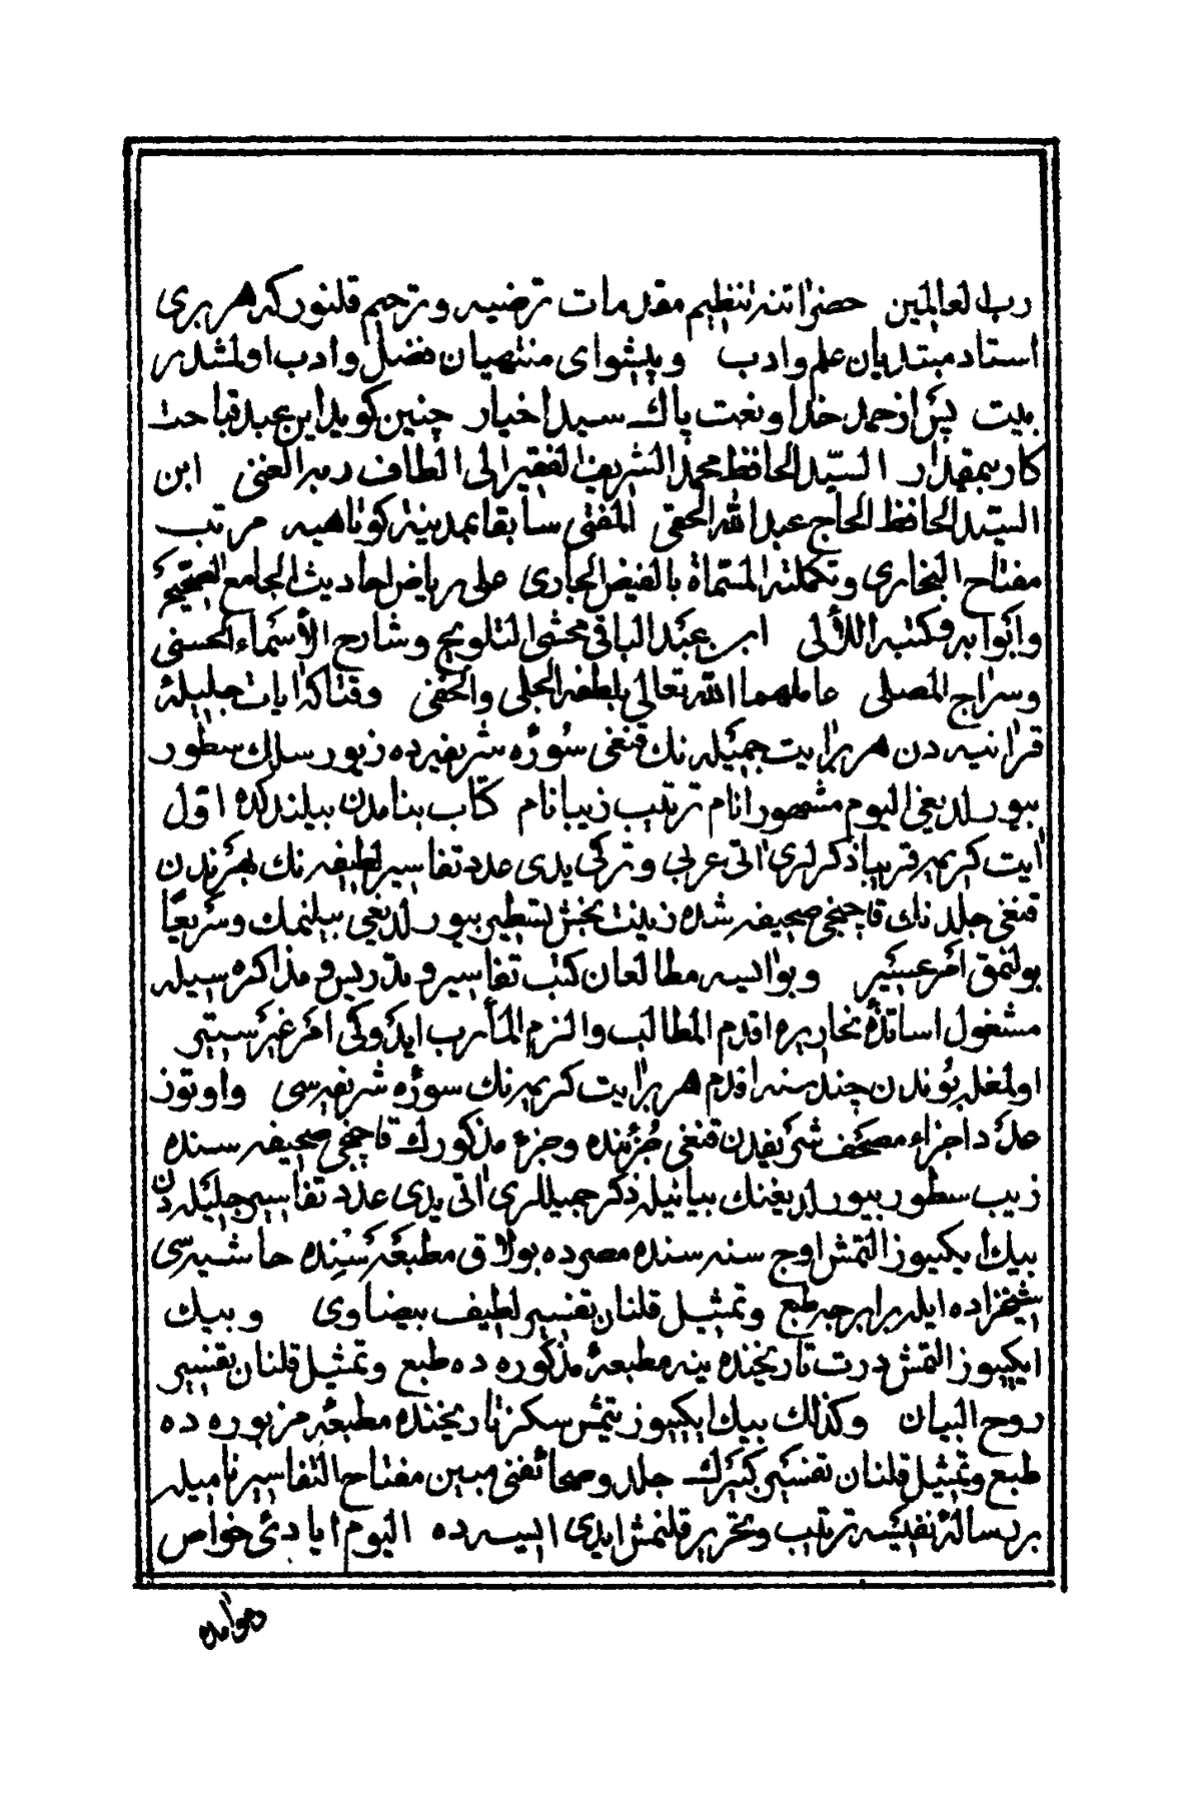 رب العالمين حضراتنه تنظيم مقدمات ترضيه وترحيم قلنوركه هر برى
استاد مبتديان علم وادب وپيشواى منتهيان فضل وادب اولمشدر
بيت پس از حمد خدا ونعت پاك سيد اخيار چنين كويد اين عبد قباحت
كار بيمقدار السيد الحافظ محمد الشريف الفقير الى الطاف ربه الغنى ابن
السيد الحافظ الحاج عبد الله الحقى المفتى سابقا بمدينة كوتاهيه مرتب
مفتاح البخارى وتكملته المسماة بالفيض الجارى على رياض احاديث الجامع الصحيح
وابوابه وكتبه اللآلى ابن عبد الباقى محشى التلويح وشارح الأسماء الحسنى
وسراج المصلى عاملهما الله تعالى بلطفه الجلى والخفى وقتاكه ايات جليلۀ
قرآنيه دن هر برايت جميله نك قنغى سوره شريفه ده زيور سلك سطور
بيورلديغى اليوم مشهور انام ترتيب زيبا نام كتاب بنامدن بيلندكده اول
ايت كريمه قريبا ذكرلرى اتى عربى وتركى يدى عدد تفاسير لطيفه نك بهرندن
قنغى جلد نك قاچنجى صحيفه سنده زينت بخش تسطير بيورلديغى بيلنمك وسريعا
بولنمق امر عسير وبو ايسه مطالعان كتب تفاسير و تدريس و مذاكره سيله
مشغول اساتذۀ نحاريره اقدم المطالب والزم المآرب ايدوكى امر غير ستير
اولمغله بوندن چند سنه اقدم هر برايت كريمه نك سوره شريفه سى واوتوز
عدد اجزاء مصحف شريفدن قنغى جزئنده وجزء مذكورك قاچنجى صحيفه سنده
زيب سطور بيورلديغنك بيانيله ذكر جميللرى اتى يدى عدد تفاسير جليله دن
بيك ايكيوز التمش اوچ سنه سنده مصرده بولاق مطبعه سنده حاشيه سى
شيخزاده ايله برابرجه طبع وتمثيل قلنان تفسير لطيف بيضاوى وبيك
ايكيوز التمش درت تاريخنده ينه مطبعۀ مذكوره ده طبع وتمثيل قلنان تفسير
روح البيان وكذلك بيك ايكيوز يتمش سكز تاريخنده مطبعۀ مزبوره ده
طبع وتمثيل قلنان تفسير كبيرك جلد وصحائفنى مبين مفتاح التفاسير ناميله
بر رسالۀ نفيسه ترتيب وتحرير قلنمش ايدى ايسه ده اليوم ايادئ خواص
وعوامده